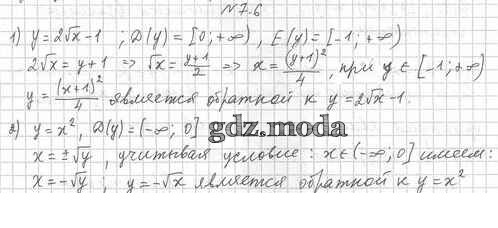 №7.6
1) y = 2√x - 1 ; D(y) = [0; +∞) , E(y) = [-1; +∞)
2√x = y + 1 => √x = (y+1)/2 => x = (y+1)²/4 , при y ∈ [-1; +∞)
y = (x+1)²/4 является обратной к y = 2√x - 1.
2) y = x² , D(y) = (-∞; 0] gdz.moda
x = ±√y , учитывая условие : x ∈ (-∞; 0] имеем:
x = -√y ; y = -√x является обратной к y = x²